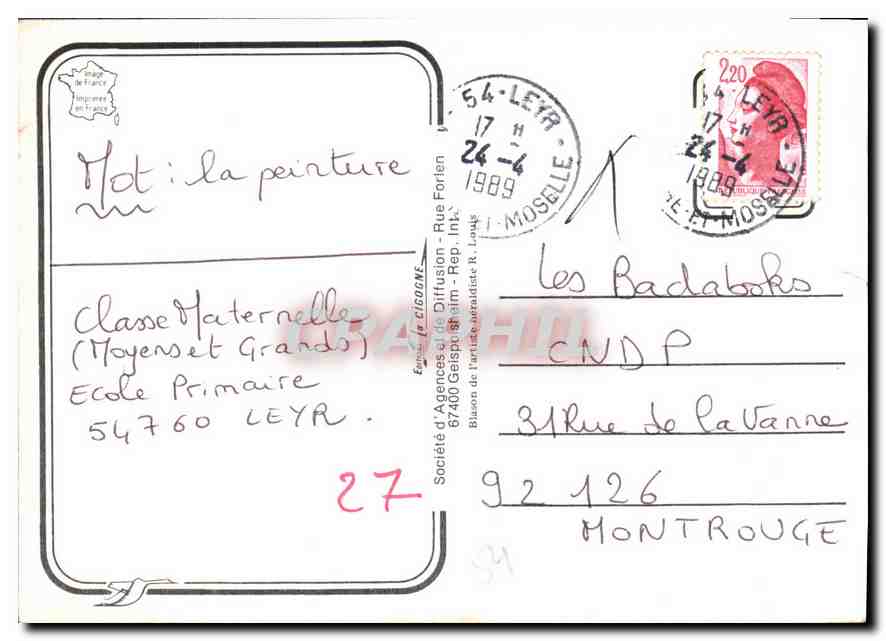 Image
de France
Imprimée
en France
Mot : la peinture
Classe Maternelle
(Moyens et Grands)
Ecole Primaire
54760 LEYR.
27
Société d'Agences et de Diffusion - Rue Forlen
67400 Geispolsheim - Rep. Int.
Editions La CIGOGNE
Blason de l'artiste héraldiste R. Louis
54 - LEYR -
17 H
24 - 4
1989
ET-MOSELLE
2,20
54 - LEYR -
17 H
24 - 4
1989
ET-MOSELLE
Les Badaboks
CNDP
31 Rue de la Vanne
92 126
MONTROUGE
CPARHIL